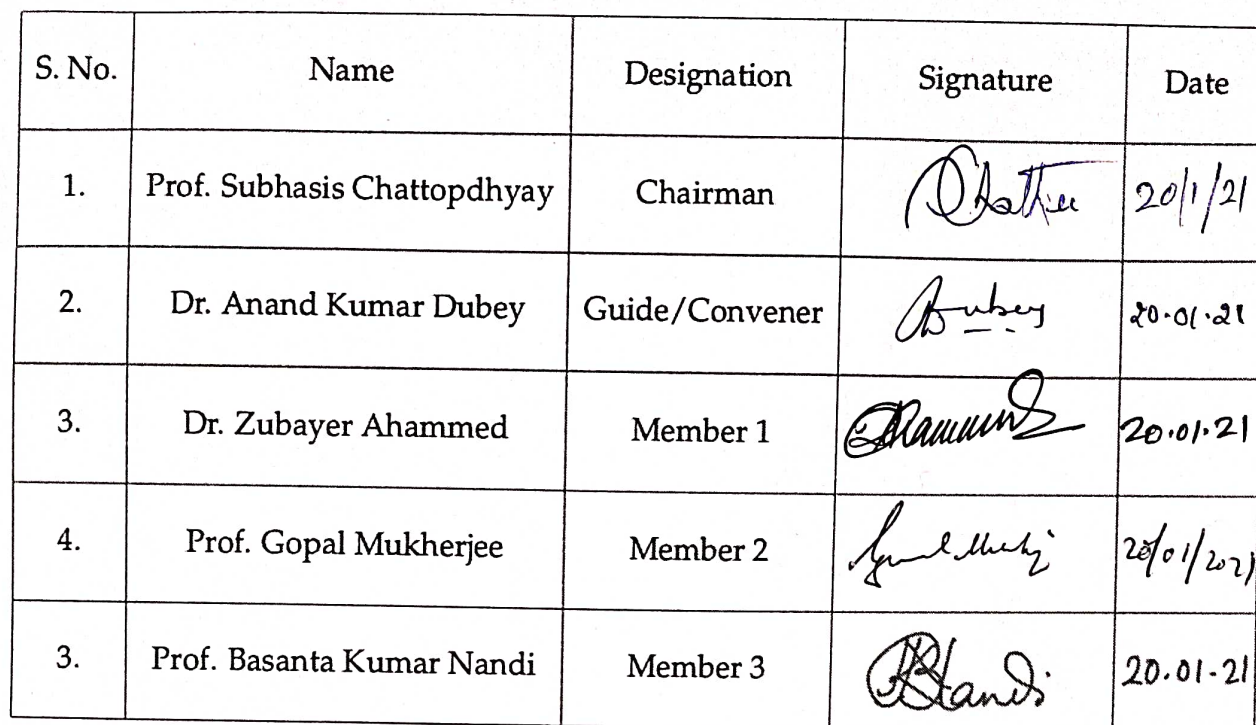 S. No. Name Designation Signature Date
1. Prof. Subhasis Chattopdhyay Chairman 20/1/21
2. Dr. Anand Kumar Dubey Guide/Convener Dubey 20.01.21
3. Dr. Zubayer Ahammed Member 1 20.01.21
4. Prof. Gopal Mukherjee Member 2 20/01/2021
3. Prof. Basanta Kumar Nandi Member 3 BKNandi 20.01.21